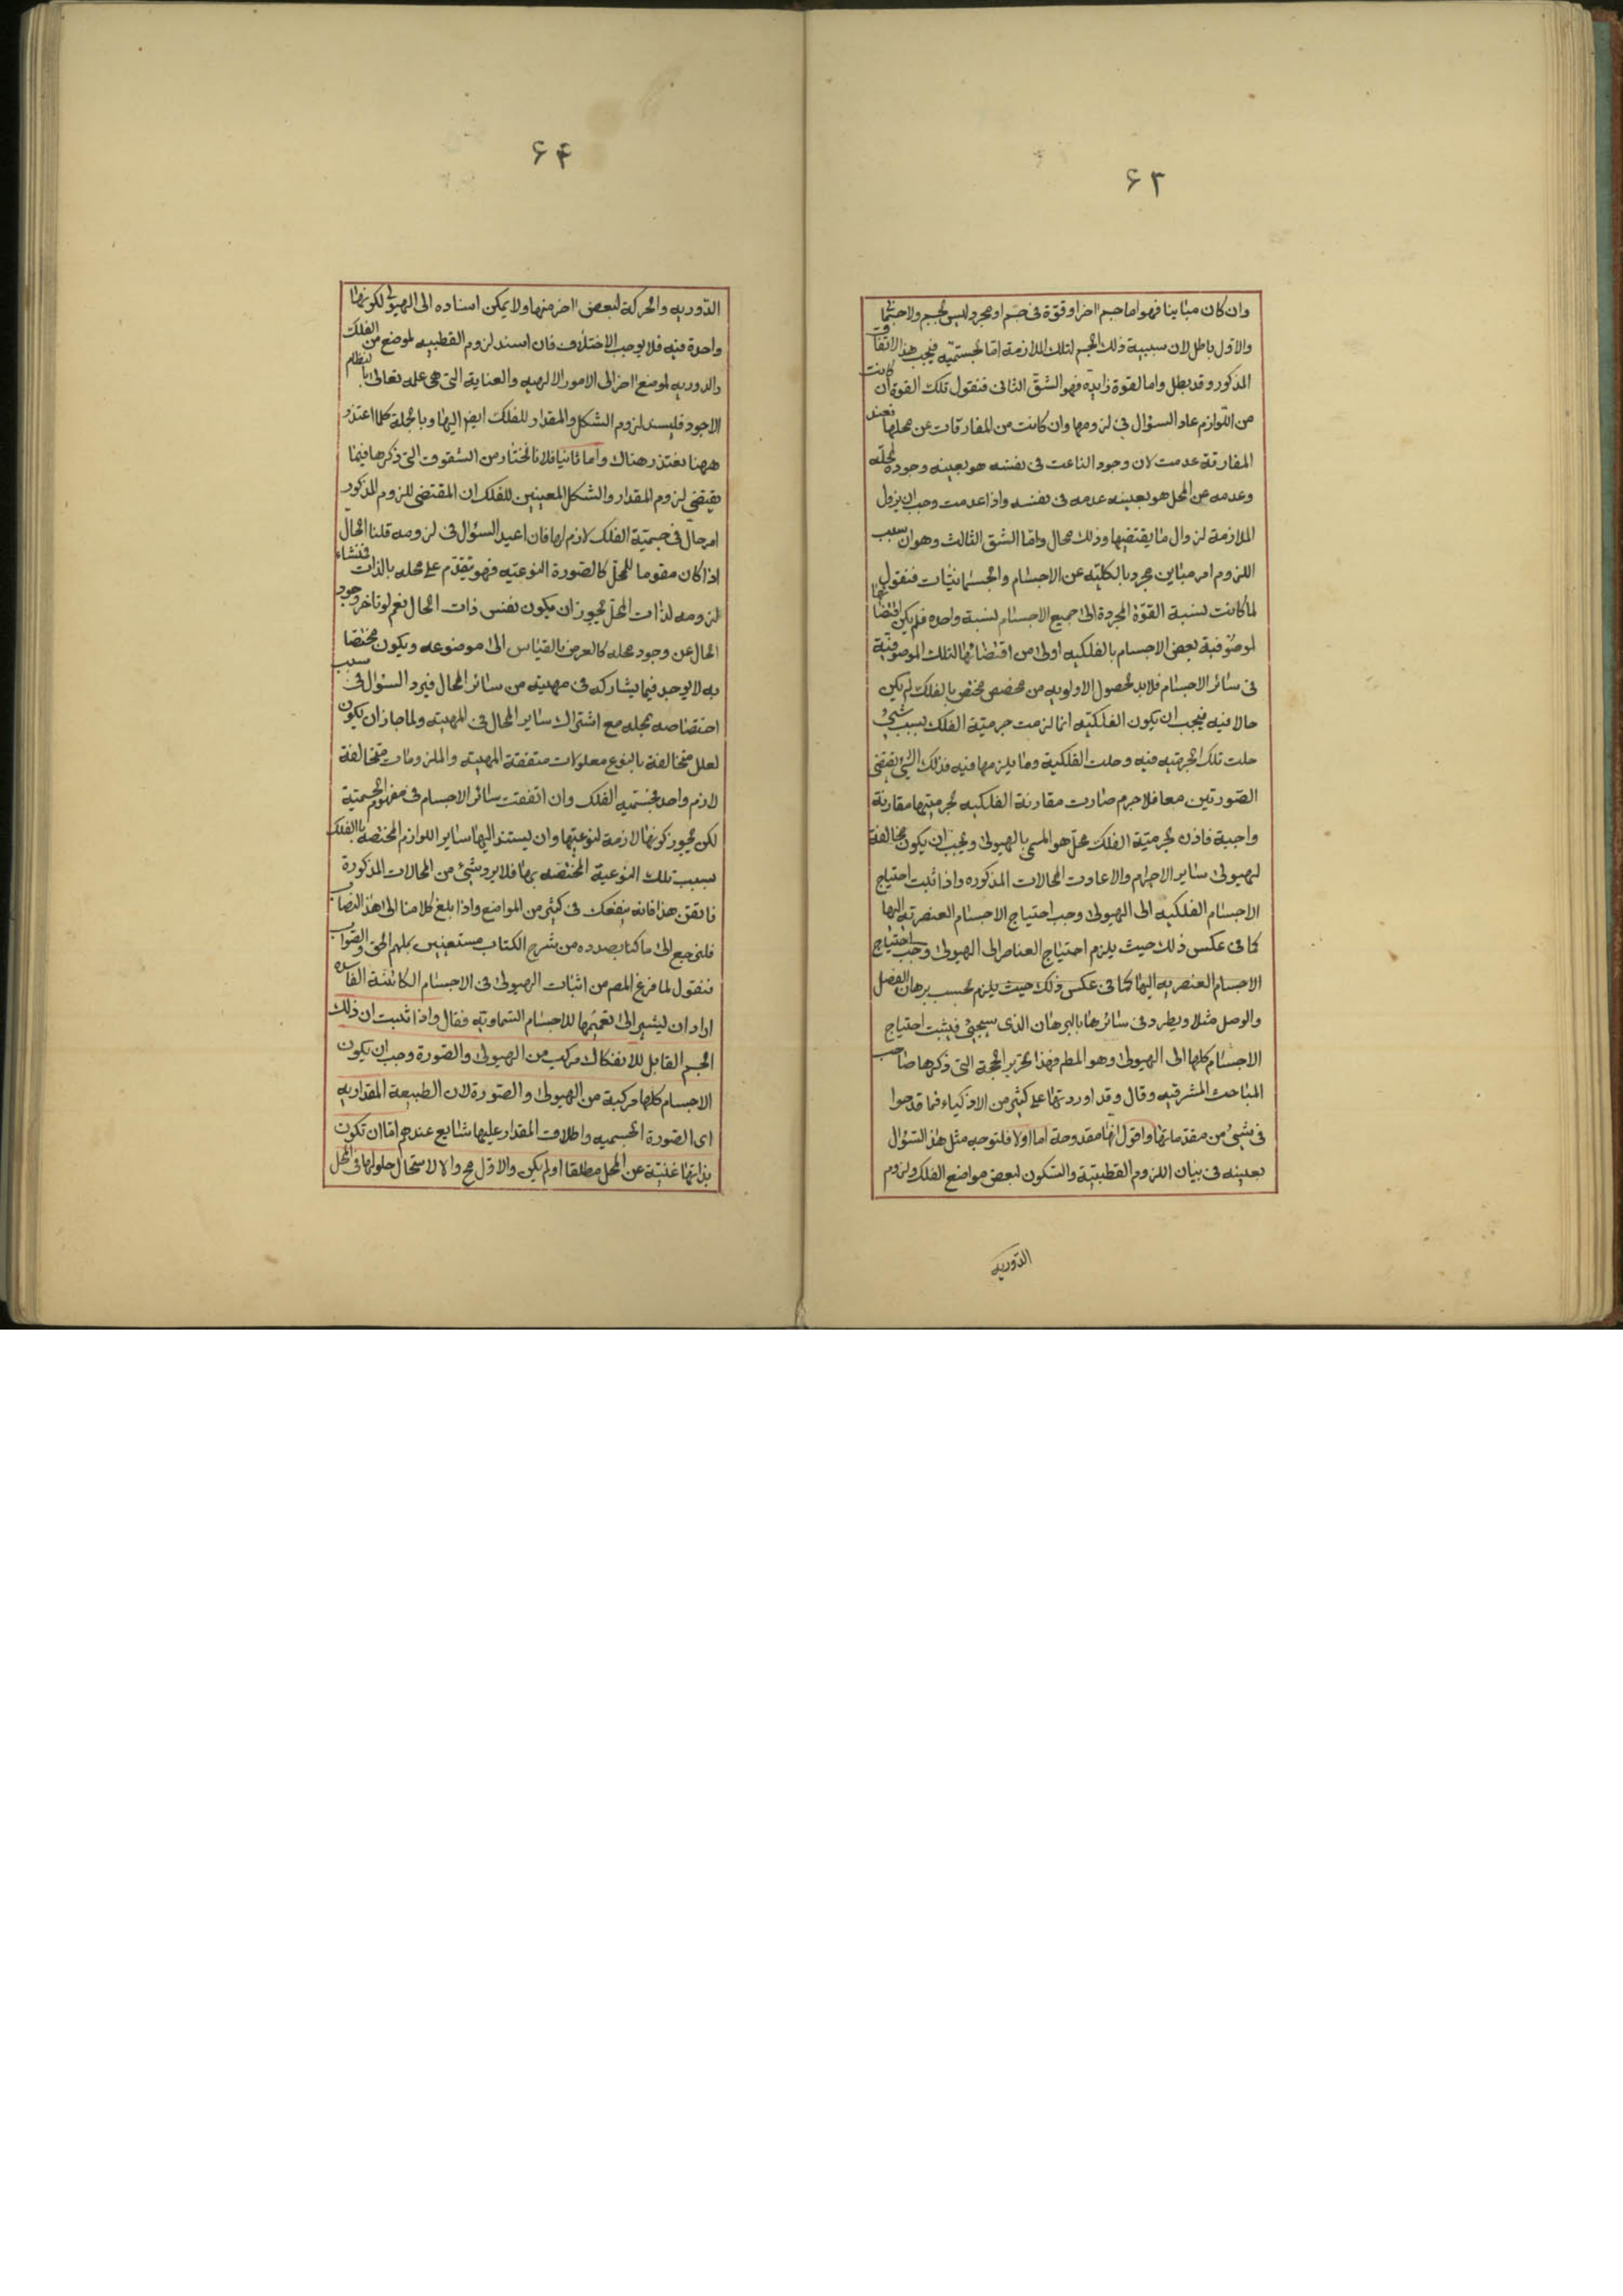 ۶۳
وان كان مباينا فهو اما جسم اخر او قوة فى جسم او مجرد ليس بجسم ولا جسمانى
والاول باطل لان سببية ذلك الجسم لتلك الملازمة اما لجسمتيه فيجب هذا الاتفاق
المذكور وقد بطل واما لقوة زايدة فهو الشق الثانى فنقول تلك القوة ان كانت
من اللوازم عاد السؤال فى لزومها وان كانت من المفارقات عن محلها فعند
المفارقة عدمت لان وجود الناعت فى نفسه هو بعينه وجوده لمحله
وعدمه عن المحل هو بعينه عدمه فى نفسه واذا عدمت وجب ان يزول
الملازمة لزوال ما يقتضيها وذلك محال واما الشق الثالث وهو ان سبب
اللزوم امر مباين مجرد بالكليه عن الاجسام والجسمانيات فنقول
لما كانت نسبة القوة المجردة الى جميع الاجسام نسبة واحده فلم يكن اقتضائها
لموصوفية بعض الاجسام بالفلكيه اولى من اقتضائها لتلك الموصوفية
فى سائر الاجسام فلابد لحصول الاولويه من مخصص مختص بالفلك لم يكن
حالا فيه فيجب ان يكون الفلكيه انما لزمت جرمية الفلك بسبب شئ
حلت تلك الجرميه فيه وحلت الفلكية وما يلزمها فيه فذلك الشئ يقتضى
الصورتين معا فلا جرم صارت مقارنة الفلكيه لجرميتها مقارنة
واجبة فاذن لجرمية الفلك محل هو المسمى بالهيولى ويجب ان يكون مخالفة
لهيولى ساير الاجرام والا عادت المحالات المذكوره واذا ثبت احتياج
الاجسام الفلكيه الى الهيولى وجب احتياج الاجسام العنصريه اليها
كما فى عكس ذلك حيث يلزم احتياج العناصر الى الهيولى وجب احتياج
الاجسام العنصريه اليها كما فى عكس ذلك حيث يلزم بحسب برهان الفصل
والوصل مثلا ويطرد فى سائرها بالبرهان الذى سيجئ فيثبت احتياج
الاجسام كلها الى الهيولى وهو المط فهذا تحرير الحجة التى ذكرها صاحب
المباحث المشرقيه وقال وقد اوردتها على كثير من الاذكياء فما قدحوا
فى شئ من مقدماتها واقول انها مقدوحة اما اولا فلتوجه مثل هذا السؤال
بعينه فى بيان اللزوم القطبية والسكون لبعض مواضع الفلك ولزوم
الدوريه
۶۴
الدوريه والحركة لبعض اخر منها ولا يمكن اسناده الى الهيولى لكونها
واحدة فيه فلا يوجب الاختلاف فان اسند لزوم القطبيه لموضع من الفلك
والدوريه لموضع اخر الى الامور الالهيه والعناية التى هى علمه تعالى بالنظام
الاجود فليسند لزوم الشكل والمقدار للفلك ايضا اليها وبالجملة كلما اعتذر
ههنا يعتذر هناك واما ثانيا فلانا نختار من الشقوق التى ذكرها فيما
يقتضى لزوم المقدار والشكل المعينين للفلك ان المقتضى للزوم المذكور
امر حال فى جسمية الفلك لازم لها فان اعيد السؤال فى لزومه قلنا الحال
اذا كان مقوما للمحل كالصورة النوعيه فهو تقدم على محله بالذات فنشاء
لزومه لذات المحل يجوز ان يكون نفس ذات الحال نعم لو تاخر وجود
الحال عن وجود محله كالعرض بالقياس الى موضوعه ويكون مختصا
به لا يوجد فيما يشاركه فى مهيته من سائر المحال فيرد السؤال فى سبب
اختصاصه بمحله مع اشتراك ساير المحال فى المهيته ولما جاز ان يكون
لعلل متخالفة بالنوع معلولات متفقة المهيته والملزومات متخالفة
لازم واحد فجسميه الفلك وان اتفقت سائر الاجسام فى مفهوم الجسمية
لكن يجوز كونها لازمة لنوعيتها وان يستند اليها ساير اللوازم المختصه بالفلك
بسبب تلك النوعية المختصه بها فلا يرد شئ من المحالات المذكورة
فاتقن هذا فانه ينفعك فى كثير من المواضع واذا بلغ كلامنا الى هذا النصاب
فلنرجع الى ما كنا بصدده من شرح الكتاب مستعينين بملهم الحق والصواب
فنقول لما فرغ المص من اثبات الهيولى فى الاجسام الكائنة الفاسده
اراد ان يشير الى تعميمها للاجسام السماويه فقال واذا ثبت ان ذلك
الجسم القابل للانفكاك مركب من الهيولى والصورة وجب ان يكون
الاجسام كلها مركبة من الهيولى والصورة لان الطبيعة المقداريه
اى الصورة الجسميه واطلاق المقدار عليها شايع عندهم اما ان تكون
بذاتها غنية عن المحل مطلقا او لم يكن والاول مح والا لاستحال حلولها فى المحل